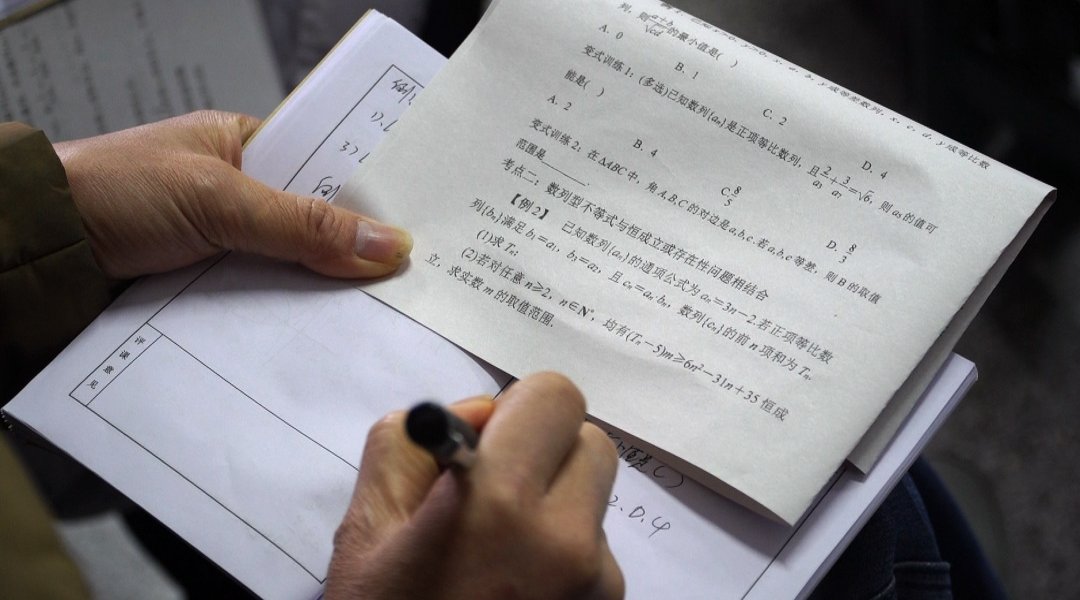 x>0, y>0, x, a, b, y成等差数列, x, c, d, y成等比数
列, 则 (a+b)²/√cd 的最小值是( )
A. 0 B. 1 C. 2 D. 4
变式训练1: (多选)已知数列{aₙ}是正项等比数列, 且2/a₃+3/a₇=√6, 则a₅的值可
能是( )
A. 2 B. 4 C. 8/5 D. 8/3
变式训练2. 在△ABC中, 角A,B,C的对边是a,b,c.若a,b,c等差, 则B的取值
范围是______.
考点二: 数列型不等式与恒成立或存在性问题相结合
【例2】 已知数列{aₙ}的通项公式为aₙ=3n−2.若正项等比数
列{bₙ}满足b₁=a₁, b₃=a₂, 且cₙ=aₙ·bₙ, 数列{cₙ}的前n项和为Tₙ.
(1)求Tₙ;
(2)若对任意n≥2, n∈N*, 均有(Tₙ−5)m≥6n²−31n+35恒成
立, 求实数m的取值范围.
评课意见
2. D. 4